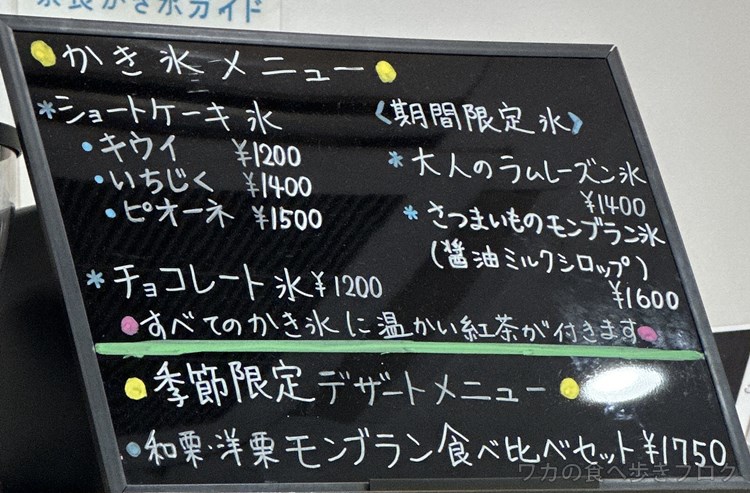 奈良かき氷ガイド
かき氷メニュー
*ショートケーキ氷
・キウイ ¥1200
・いちじく ¥1400
・ピオーネ ¥1500
*チョコレート氷 ¥1200
〈期間限定氷〉
*大人のラムレーズン氷
¥1400
*さつまいものモンブラン氷
(醤油ミルクシロップ)
¥1600
すべてのかき氷に温かい紅茶が付きます
季節限定デザートメニュー
・和栗・洋栗モンブラン食べ比べセット ¥1750
ワカの食べ歩きブログ